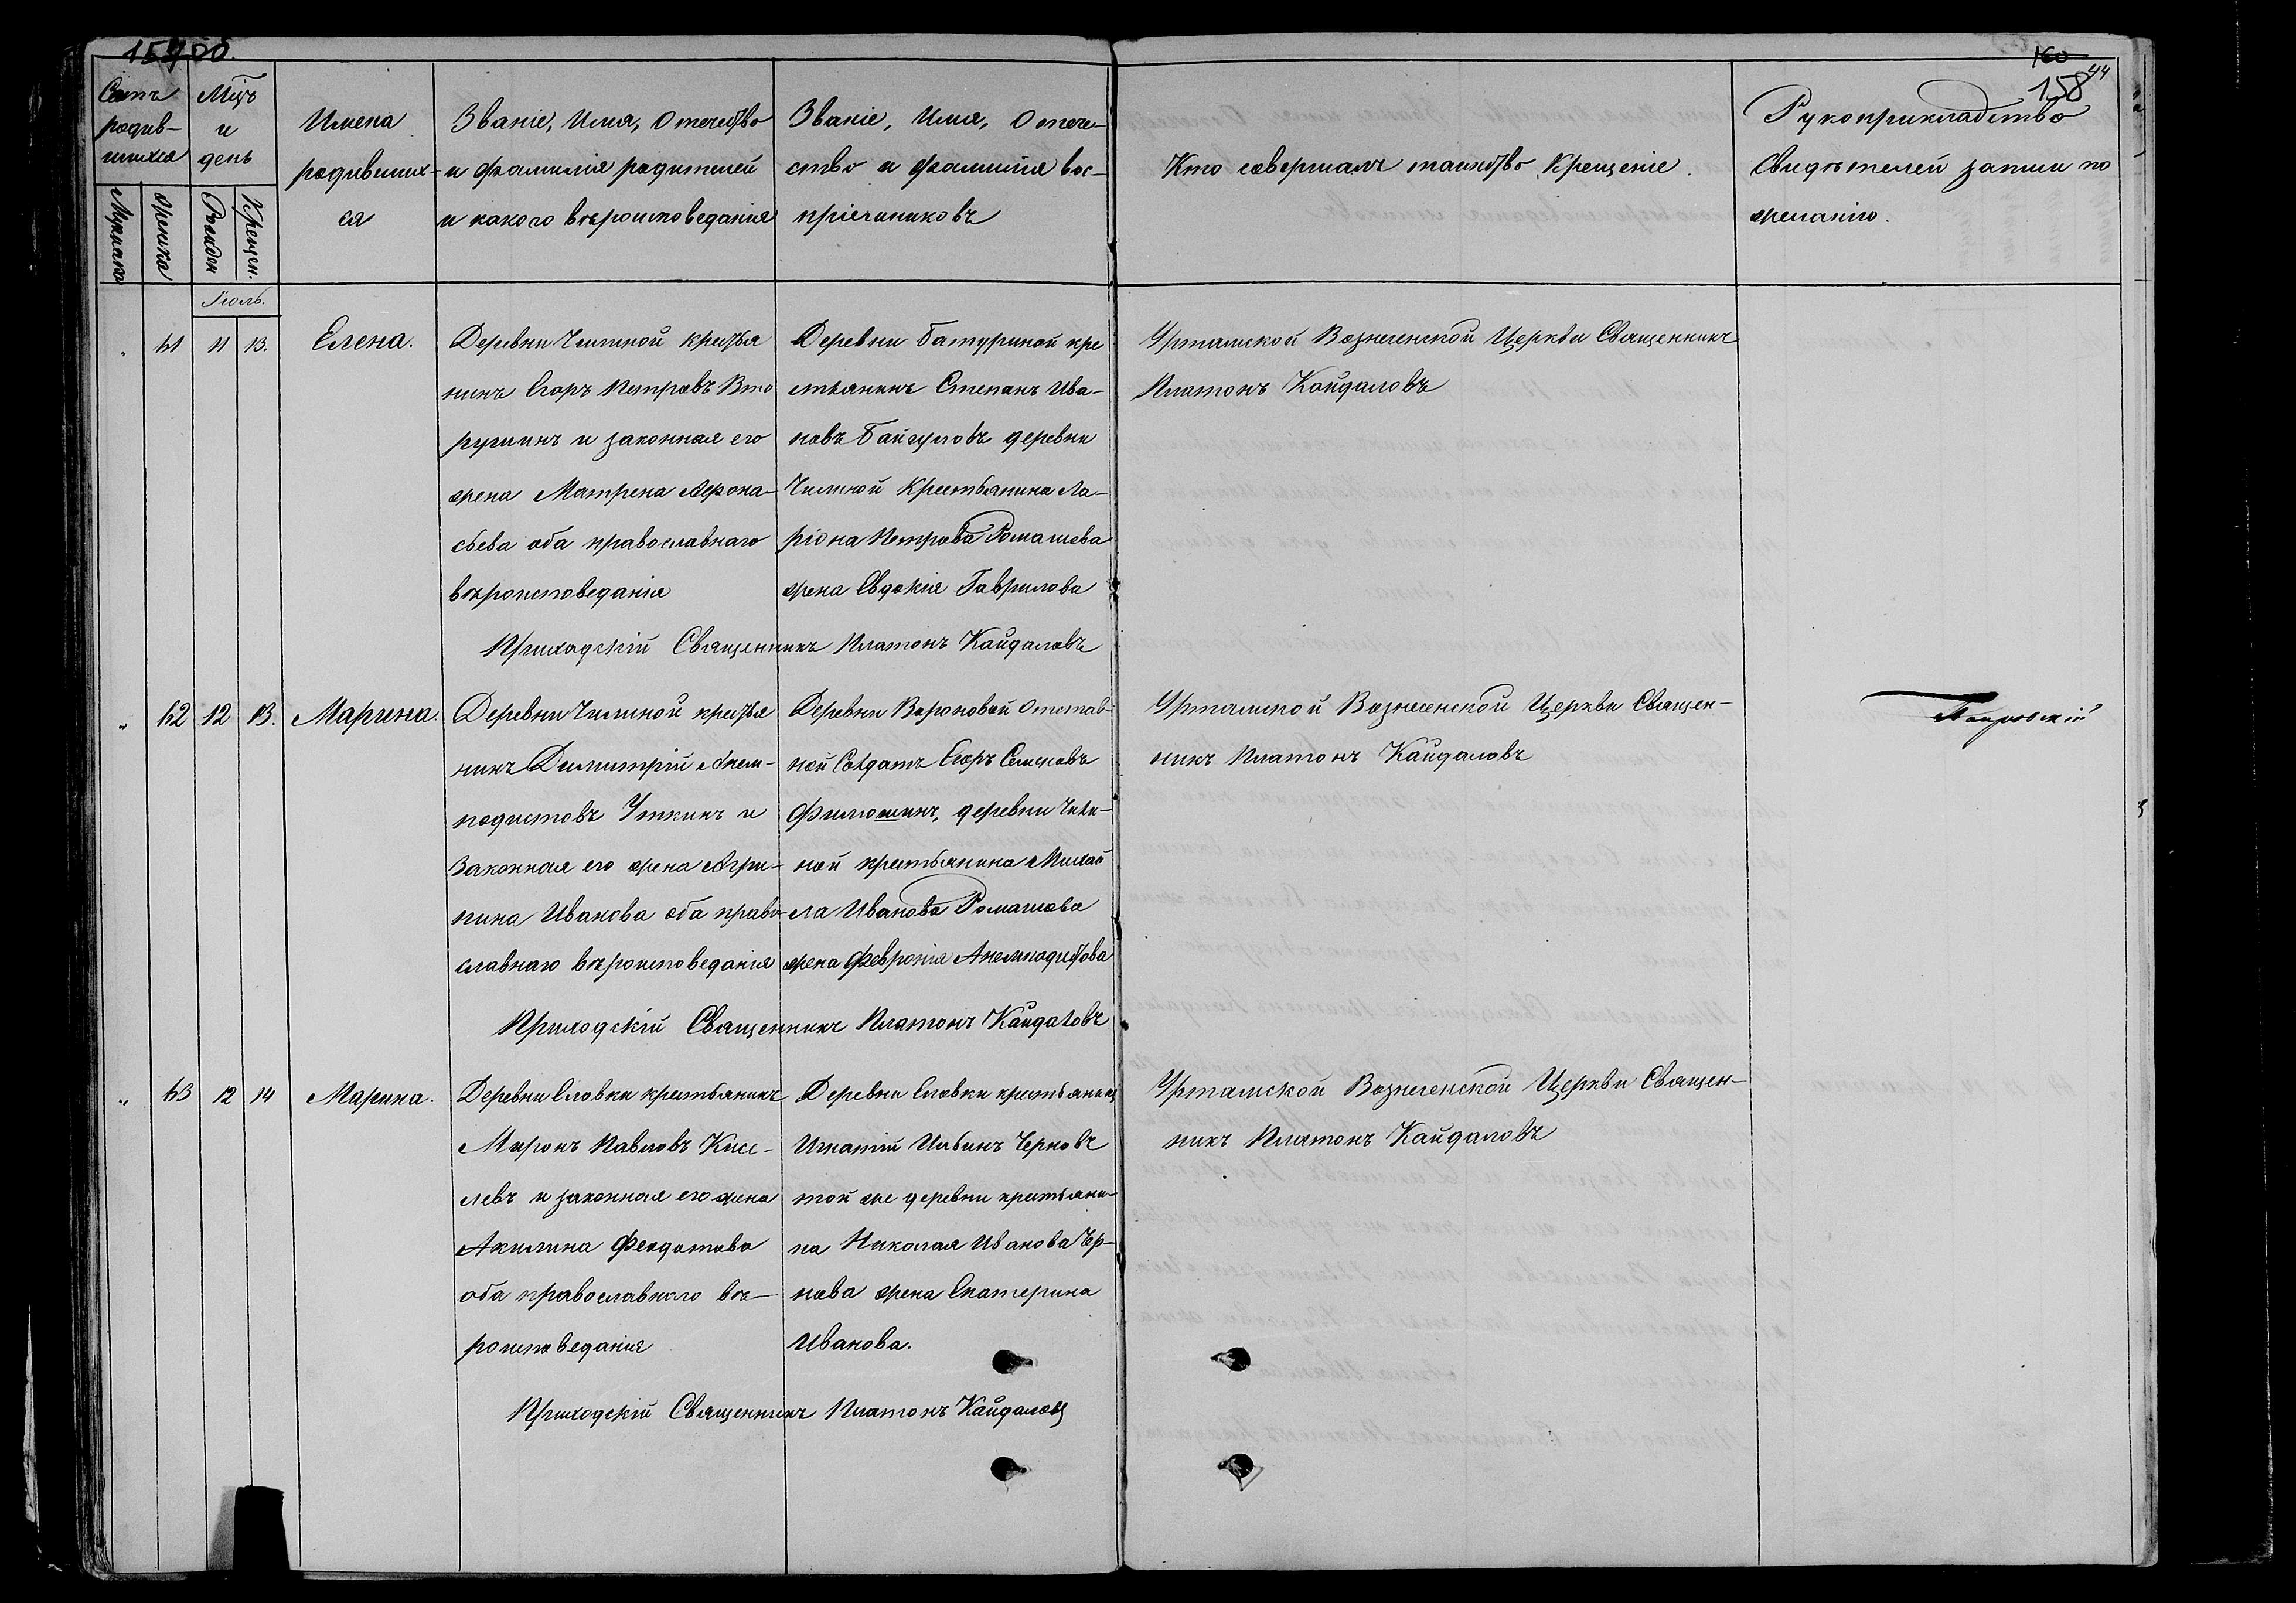 160
158
44
Счетъ родив-шихся
Мцъ и день
Имена родивших-ся
Званіе, Имя, Отечество и фамилія родителей и какого вѣроисповеданія
Званіе, Имя, Отече-ство и фамилія вос-пріемниковъ
Кто совершалъ таинство Крещеніе.
Рукоприкладство Свидѣтелей записи по желанію.
Мужеска
Женска
Рожден
Крещен.
Іюль.
" 61 11 13. Елена.
Деревни Чилиной крестья
нинъ Егоръ Петровъ Вто
рушинъ и законная его
жена Матрена Афона-
сьева оба православнаго
вѣроисповеданія
Деревни Батуриной кре
стьянинъ Степанъ Ива-
новъ Байгуловъ деревни
Чилиной Крестьянина Ла-
ріона Петрова Ромашева
жена Евдокія Гаврилова
Уртамской Вознесенской Церкви Священникъ
Платонъ Кайдаловъ
Приходскій Священникъ Платонъ Кайдаловъ
" 62 12 13. Марина.
Деревни Чилиной крестья
нинъ Димитрій Анем-
подистовъ Уткинъ и
Законная его жена Агри-
пина Иванова оба право-
славнаго вѣроисповеданія
Деревни Вороновой Отстав-
ной Солдатъ Егоръ Семеновъ
Филюшинъ, деревни Чили-
ной крестьянина Михай
ла Иванова Ромашова
жена Февронія Анемподистова
Уртамской Вознесенской Церкви Священ-
никъ Платонъ Кайдаловъ
Приходскій Священникъ Платонъ Кайдаловъ
" 63 12 14 Марина.
Деревни Еловки крестьянинъ
Миронъ Павловъ Кисе-
левъ и законная его жена
Акилина Феодотова
оба православнаго вѣ-
роисповеданія
Деревни Еловки крестьянинъ
Игнатій Ильинъ Черновъ
той же деревни крестьяни-
на Николая Иванова Чер-
нова жена Екатерина
Иванова.
Уртамской Вознесенской Церкви Священ-
никъ Платонъ Кайдаловъ
Приходскій Священникъ Платонъ Кайдаловъ